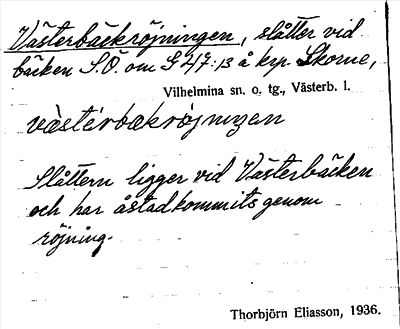 Västerbäckröjningen, slåtter vid
bäcken S.Ö. om G 2/7:13 å krp Skorne,
Vilhelmina sn. o. tg., Västerb. l.
västerbækröjningen
Slåttern ligger vid Västerbäcken
och har åstadkommits genom
röjning.
Thorbjörn Eliasson, 1936.